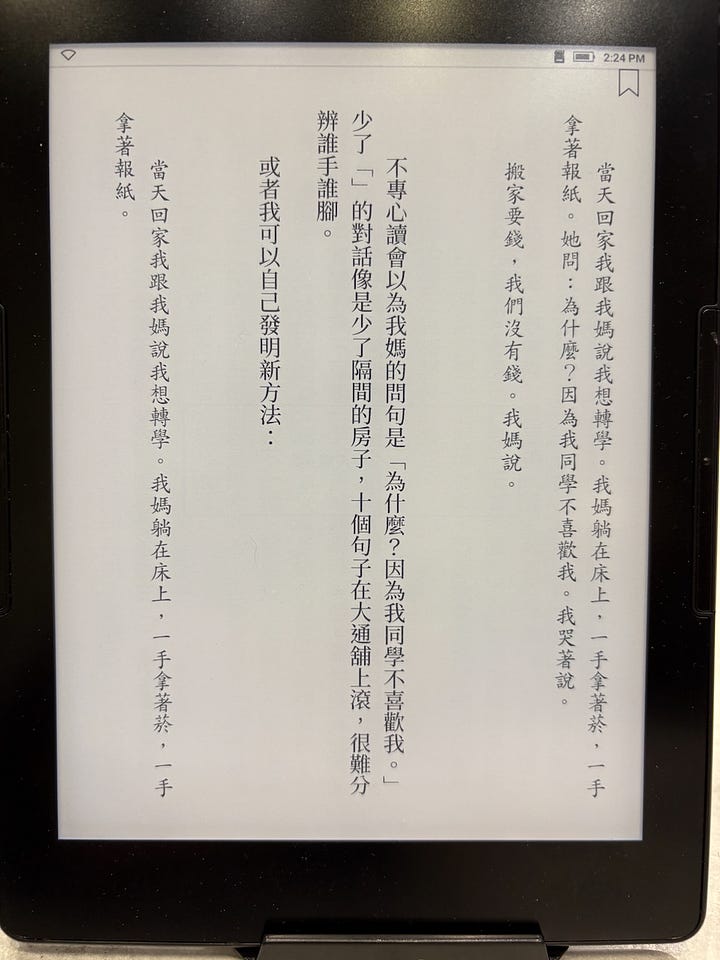 2:24 PM
當天回家我跟我媽說我想轉學。我媽躺在床上，一手拿著菸，一手
拿著報紙。她問：為什麼？因為我同學不喜歡我。我哭著說。
搬家要錢，我們沒有錢。我媽說。
不專心讀會以為我媽的問句是「為什麼？因為我同學不喜歡我。」
少了「」的對話像是少了隔間的房子，十個句子在大通舖上滾，很難分
辨誰手誰腳。
或者我可以自己發明新方法：
當天回家我跟我媽說我想轉學。我媽躺在床上，一手拿著菸，一手
拿著報紙。